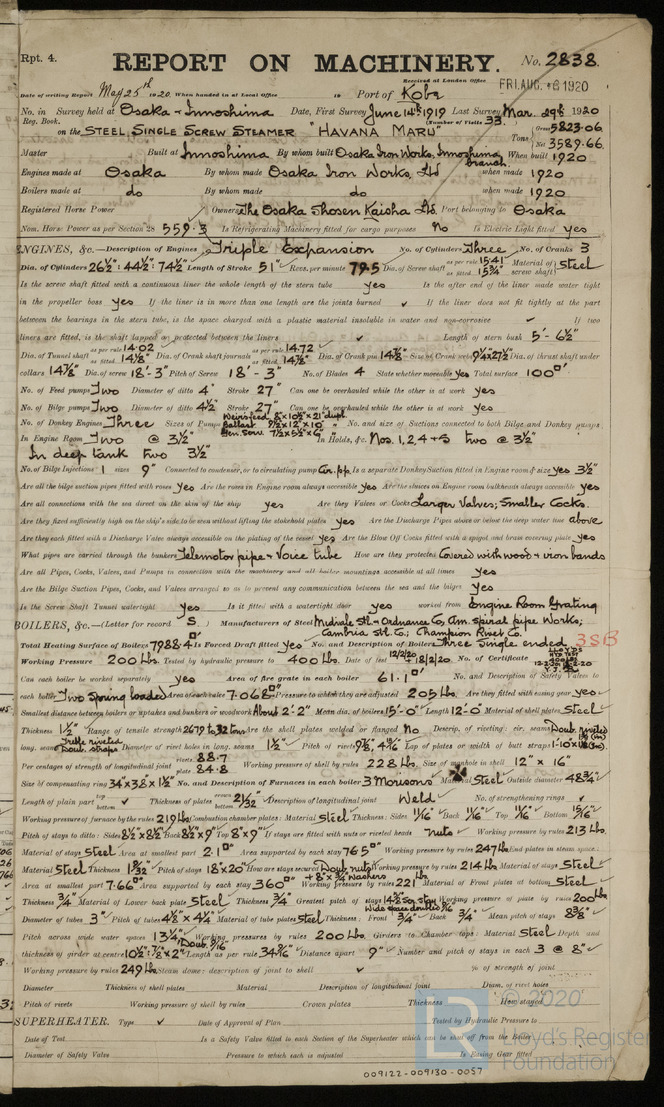 Rpt. 4. REPORT ON MACHINERY. No. 2838.
Received at London Office FRI. AUG. 6 1920
Date of writing Report May 25th 1920. When handed in at Local Office 19 Port of Kobe
No. in Survey held at Osaka & Innoshima Date, First Survey June 14th 1919 Last Survey Mar. 29th 1920
Reg. Book. (Number of Visits 33.
on the STEEL SINGLE SCREW STEAMER "HAVANA MARU" Tons Gross 5823.06 Net 3589.66
Master Built at Innoshima By whom built Osaka Iron Works, Innoshima branch When built 1920
Engines made at Osaka By whom made Osaka Iron Works, Ltd when made 1920
Boilers made at do By whom made do when made 1920
Registered Horse Power Owners The Osaka Shosen Kaisha Ld. Port belonging to Osaka
Nom. Horse Power as per Section 28 559.3 Is Refrigerating Machinery fitted for cargo purposes No Is Electric Light fitted yes
ENGINES, &c.—Description of Engines Triple Expansion No. of Cylinders Three No. of Cranks 3
Dia. of Cylinders 26½": 44½": 74½" Length of Stroke 51" Revs. per minute 79.5 Dia. of Screw shaft as per rule 15.41 as fitted 15¾" Material of screw shaft Steel
Is the screw shaft fitted with a continuous liner the whole length of the stern tube yes Is the after end of the liner made water tight
in the propeller boss yes If the liner is in more than one length are the joints burned ✓ If the liner does not fit tightly at the part
between the bearings in the stern tube, is the space charged with a plastic material insoluble in water and non-corrosive ✓ If two
liners are fitted, is the shaft lapped or protected between the liners ✓ Length of stern bush 5'-6½"
Dia. of Tunnel shaft as per rule 14.02 as fitted 14⅛" Dia. of Crank shaft journals as per rule 14.72 as fitted 14⅞" Dia. of Crank pin 14⅞" Size of Crank webs 9¼x27½ Dia. of thrust shaft under
collars 14⅞" Dia. of screw 18'-3" Pitch of Screw 18'-3" No. of Blades 4 State whether moveable yes Total surface 100□'
No. of Feed pumps Two Diameter of ditto 4" Stroke 27" Can one be overhauled while the other is at work yes
No. of Bilge pumps Two Diameter of ditto 4½" Stroke 27" Can one be overhauled while the other is at work yes
No. of Donkey Engines Three Sizes of Pumps No. and size of Suctions connected to both Bilge and Donkey pumps
In Engine Room Two @ 3½" In Holds, &c. Nos. 1, 2, 4 & 5 two @ 3½"
In deep tank two 3½"
No. of Bilge Injections 1 sizes 9" Connected to condenser, or to circulating pump Cir. pp. Is a separate Donkey Suction fitted in Engine room & size yes 3½"
Are all the bilge suction pipes fitted with roses yes Are the roses in Engine room always accessible yes Are the sluices on Engine room bulkheads always accessible yes
Are all connections with the sea direct on the skin of the ship yes Are they Valves or Cocks Larger Valves; Smaller Cocks.
Are they fixed sufficiently high on the ship's side to be seen without lifting the stokehold plates yes Are the Discharge Pipes above or below the deep water line above
Are they each fitted with a Discharge Valve always accessible on the plating of the vessel yes Are the Blow Off Cocks fitted with a spigot and brass covering plate yes
What pipes are carried through the bunkers Telemotor pipe & Voice tube How are they protected Covered with wood & iron bands
Are all Pipes, Cocks, Valves, and Pumps in connection with the machinery and all boiler mountings accessible at all times yes
Are the Bilge Suction Pipes, Cocks, and Valves arranged so as to prevent any communication between the sea and the bilges yes
Is the Screw Shaft Tunnel watertight yes Is it fitted with a watertight door yes worked from Engine Room Grating
BOILERS, &c.—(Letter for record S. Manufacturers of Steel Midvale Stl. & Ordnance Co, Am. spiral pipe Works; Cambria Stl. Co; Champion Rivet Co.
Total Heating Surface of Boilers 7988.4□' Is Forced Draft fitted yes No. and Description of Boilers Three single ended 3SB
Working Pressure 200 Lbs. Tested by hydraulic pressure to 400 Lbs. Date of test 12/2/20 18/2/20 No. of Certificate
Can each boiler be worked separately yes Area of fire grate in each boiler 61.1□' No. and Description of Safety Valves to
each boiler Two Spring loaded Area of each valve 7.068□" Pressure to which they are adjusted 205 Lbs. Are they fitted with easing gear yes
Smallest distance between boilers or uptakes and bunkers or woodwork About 2'-2" Mean dia. of boilers 15'-0" Length 12'-0" Material of shell plates Steel
Thickness 1½" Range of tensile strength Are the shell plates welded or flanged No Descrip. of riveting: cir. seams Doub. riveted
long. seams Treble riveted Doub. straps Diameter of rivet holes in long. seams 1½" Pitch of rivets Lap of plates or width of butt straps
Per centages of strength of longitudinal joint rivets 88.7 plate 84.8 Working pressure of shell by rules 228 Lbs. Size of manhole in shell 12" x 16"
Size of compensating ring 34"x38"x1½" No. and Description of Furnaces in each boiler 3 Morisons Material Steel Outside diameter 48¾"
Length of plain part top bottom ✓ Thickness of plates crown bottom 21/32" Description of longitudinal joint Weld No. of strengthening rings ✓
Working pressure of furnace by the rules 219 Lbs Combustion chamber plates: Material Steel Thickness: Sides 11/16" Back 11/16" Top 11/16" Bottom 15/16"
Pitch of stays to ditto: Sides 8½"x8½" Back 8½"x9" Top 8"x9" If stays are fitted with nuts or riveted heads nuts Working pressure by rules 213 Lbs.
Material of stays Steel Area at smallest part 2.1□" Area supported by each stay 76.5□" Working pressure by rules 247 Lbs End plates in steam space:
Material Steel Thickness 1 5/32" Pitch of stays 18"x20" How are stays secured Doub. nuts Working pressure by rules 214 Lbs. Material of stays Steel
Area at smallest part 7.66□" Area supported by each stay 360□" Working pressure by rules 221 Material of Front plates at bottom Steel
Thickness ¾" Material of Lower back plate Steel Thickness ¾" Greatest pitch of stays Working pressure of plate by rules 200 Lbs
Diameter of tubes 3" Pitch of tubes 4⅛"x4¼" Material of tube plates Steel Thickness: Front ¾" Back ¾" Mean pitch of stays 8⅜"
Pitch across wide water spaces 13¾" Working pressures by rules 200 Lbs. Girders to Chamber tops: Material Steel Depth and
thickness of girder at centre 10½": ⅞"x2" Length as per rule Distance apart 9" Number and pitch of stays in each 3 @ 8"
Working pressure by rules 249 Lbs Steam dome: description of joint to shell ✓ % of strength of joint
Diameter Thickness of shell plates Material Description of longitudinal joint Diam. of rivet holes
Pitch of rivets Working pressure of shell by rules Crown plates Thickness How stayed
SUPERHEATER. Type ✓ Date of Approval of Plan Tested by Hydraulic Pressure to
Date of Test Is a Safety Valve fitted to each Section of the Superheater which can be shut off from the Boiler
Diameter of Safety Valve Pressure to which each is adjusted Is Easing Gear fitted
© 2020
Lloyd's Register
Foundation
009122-009130-0057